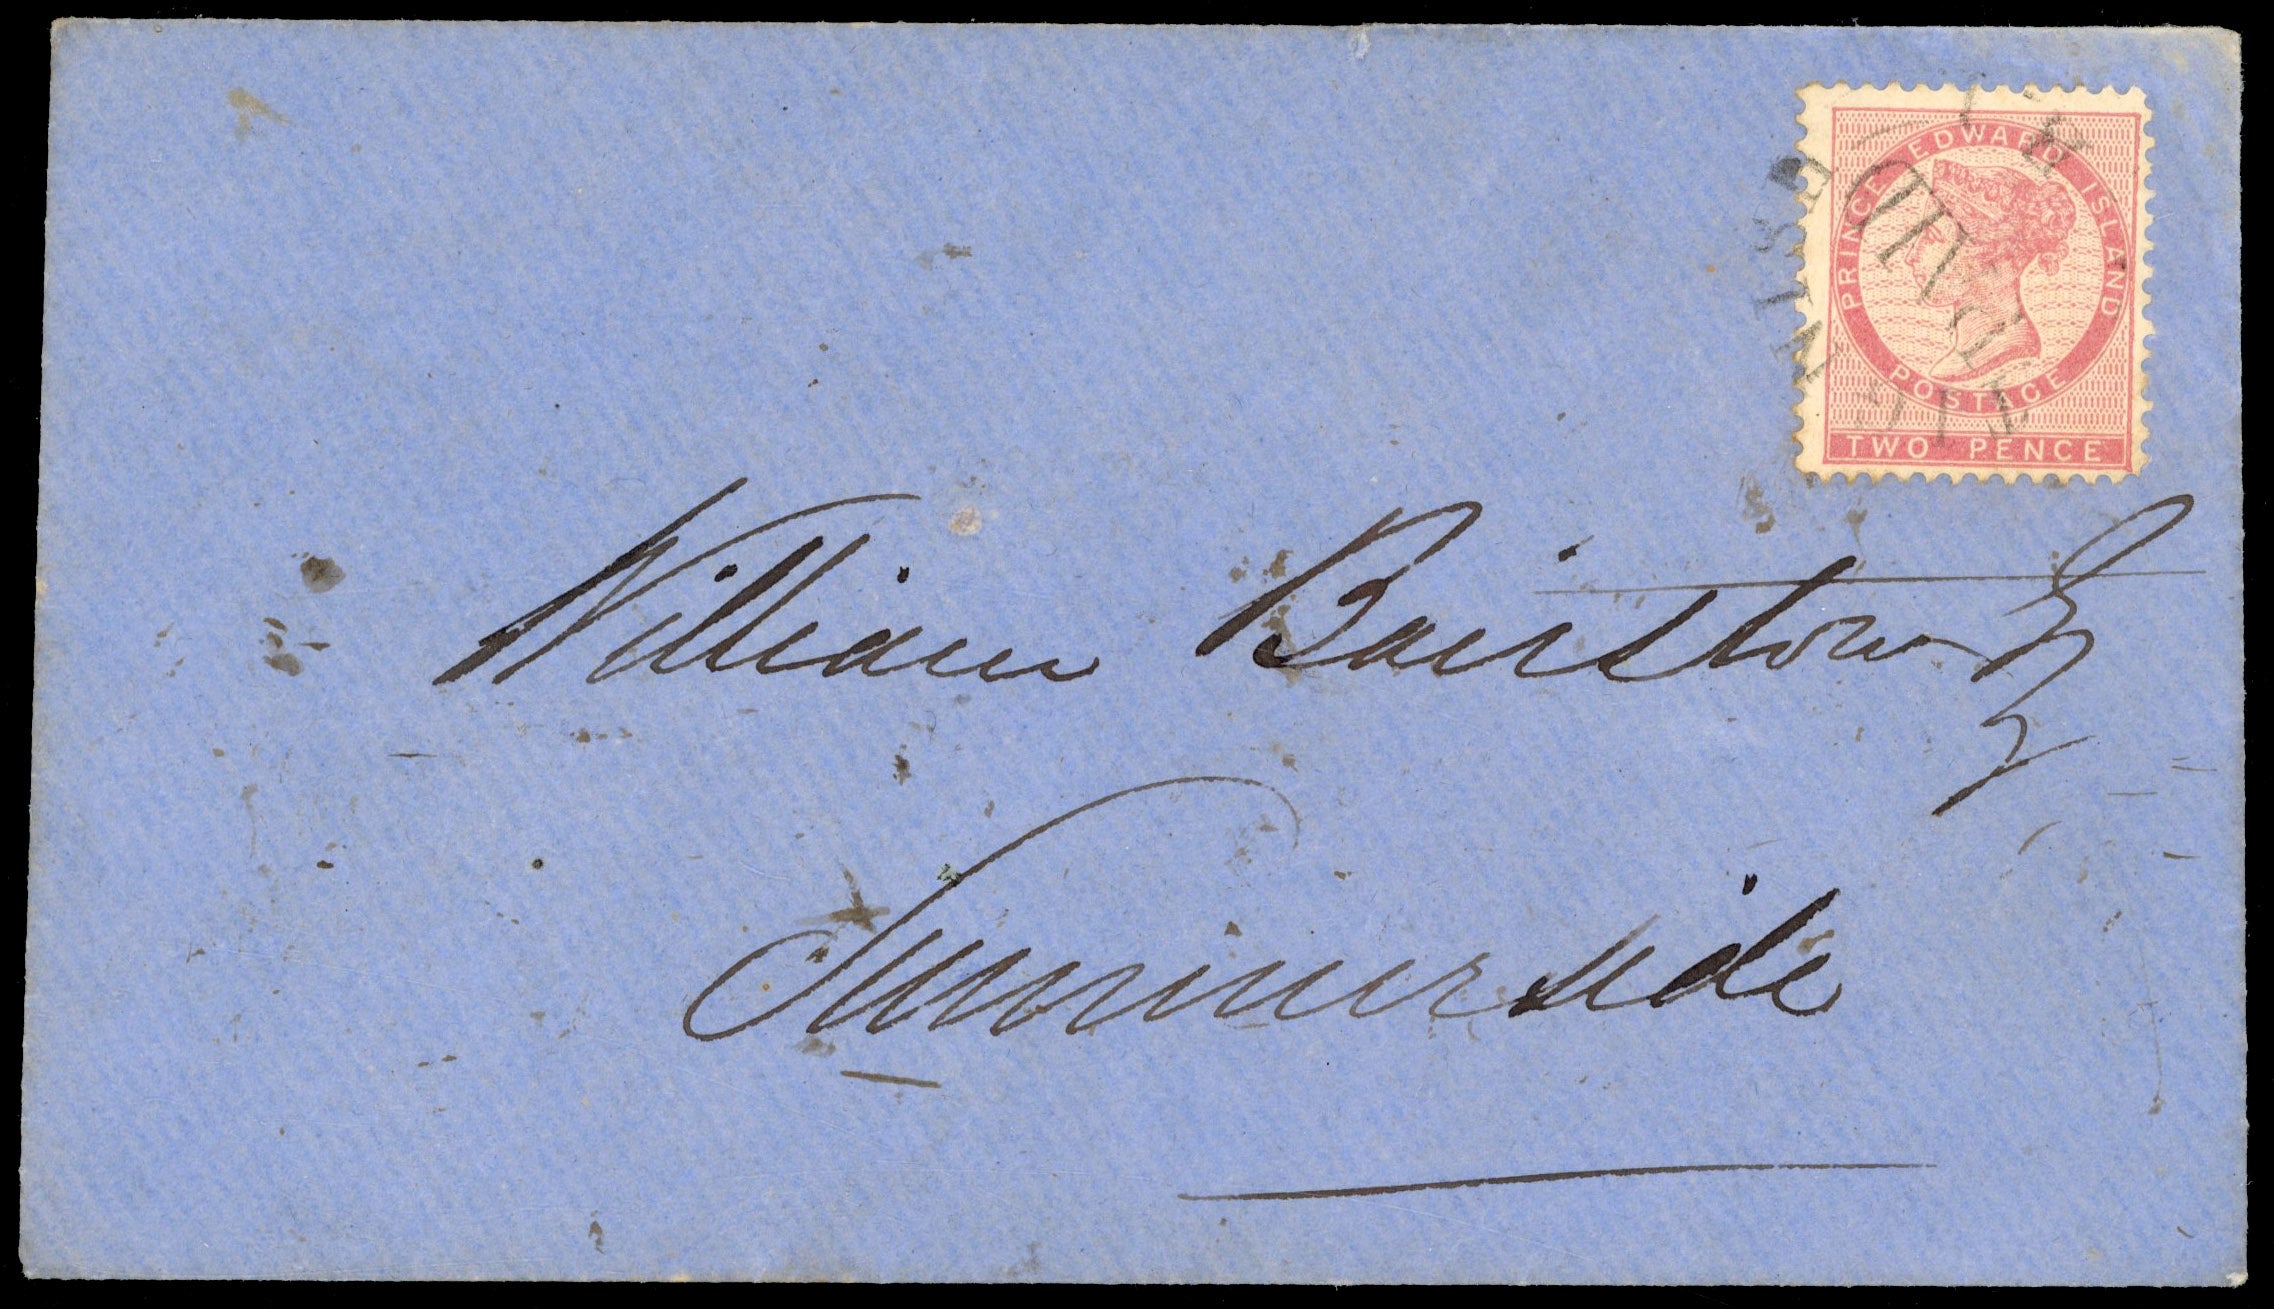 PRINCE EDWARD ISLAND
POSTAGE
TWO PENCE
PAID
William Bairstow Esq
Summerside